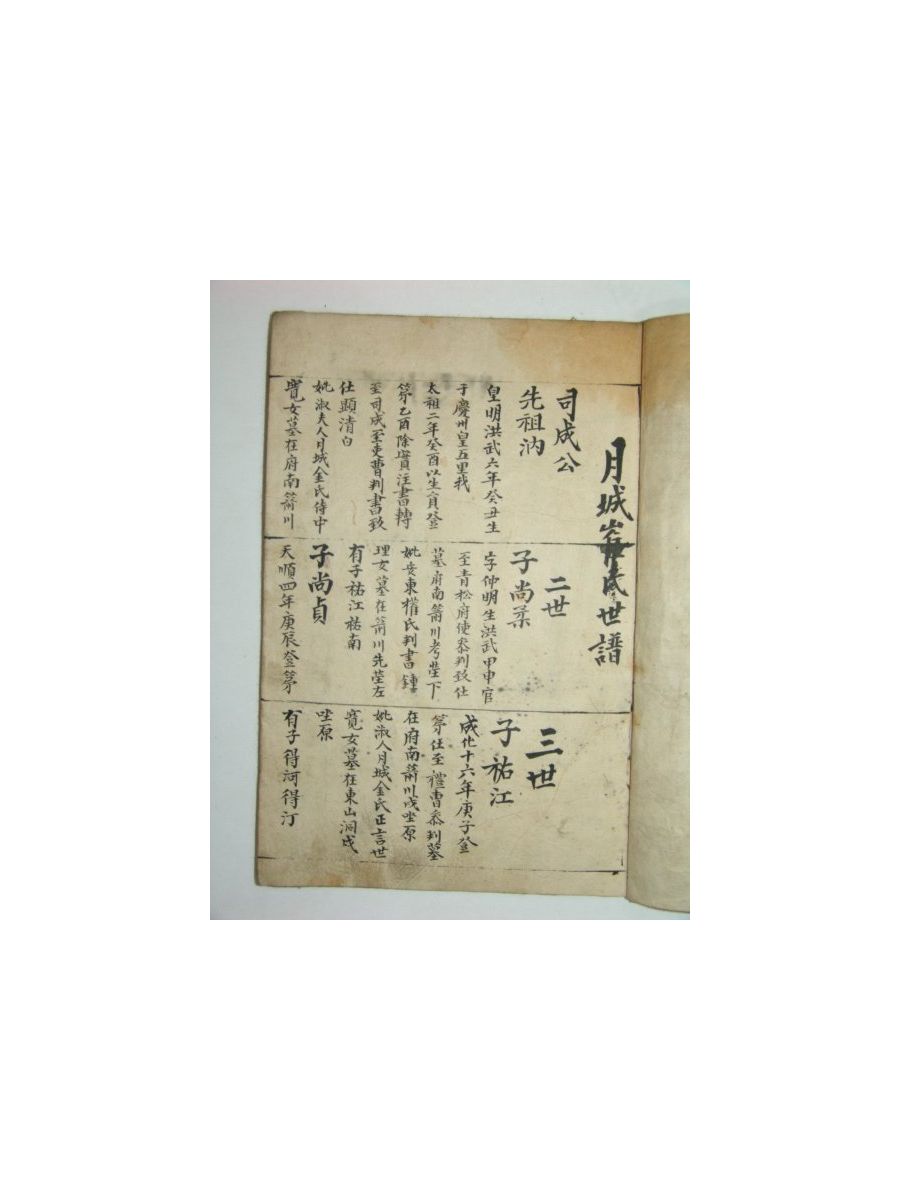 月城崔氏世譜
司成公
先祖汭
皇明洪武六年癸丑生
于慶州皇五里我
太祖二年癸酉以生員登
第乙酉除實注書轉
至司成至吏曹判書致
仕顯清白
妣淑夫人月城金氏侍中
寬女墓在府南箭川
二世
子尚柔
字仲明生洪武甲申官
至青松府使叅判致仕
墓府南箭川考塋下
妣安東權氏判書鍾
理女墓在箭川先塋左
有子祐江祐南
子尚貞
天順四年庚辰登第
三世
子祐江
成化十六年庚子登
第仕至禮曹叅判墓
在府南箭川戌坐原
妣淑人月城金氏正言世
寬女墓在東山洞戌
坐原
有子得河得汀